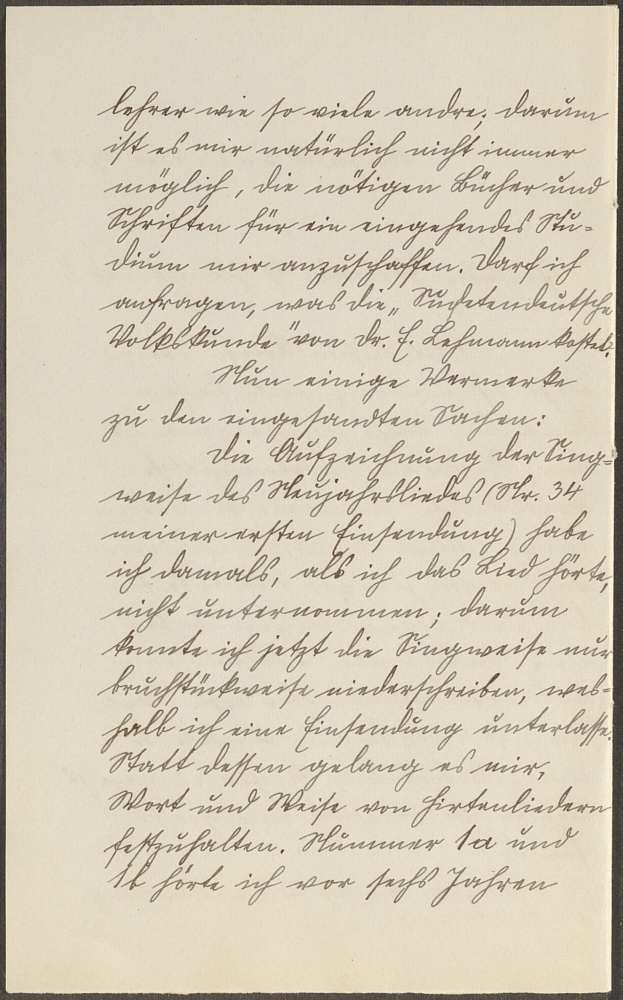 lehrer wie so viele andre; darum
ist es mir natürlich nicht immer
möglich, die nötigen Bücher und
Schriften für ein eingehendes Stu-
dium mir anzuschaffen. Darf ich
anfragen, was die „Sudetendeutsche
Volkskunde" von Dr. E. Lehmann kostet.
Nun einige Vermerke
zu den eingesandten Sachen:
Die Aufzeichnung der Sing-
weise des Neujahrsliedes (Nr. 34
meiner ersten Einsendung) habe
ich damals, als ich das Lied hörte,
nicht unternommen; darum
konnte ich jetzt die Singweise nur
bruchstückweise niederschreiben, wes-
halb ich eine Einsendung unterlasse.
Statt dessen gelang es mir,
Wort und Weise von Hirtenliedern
festzuhalten. Nummer 1a und
1b hörte ich vor sechs Jahren